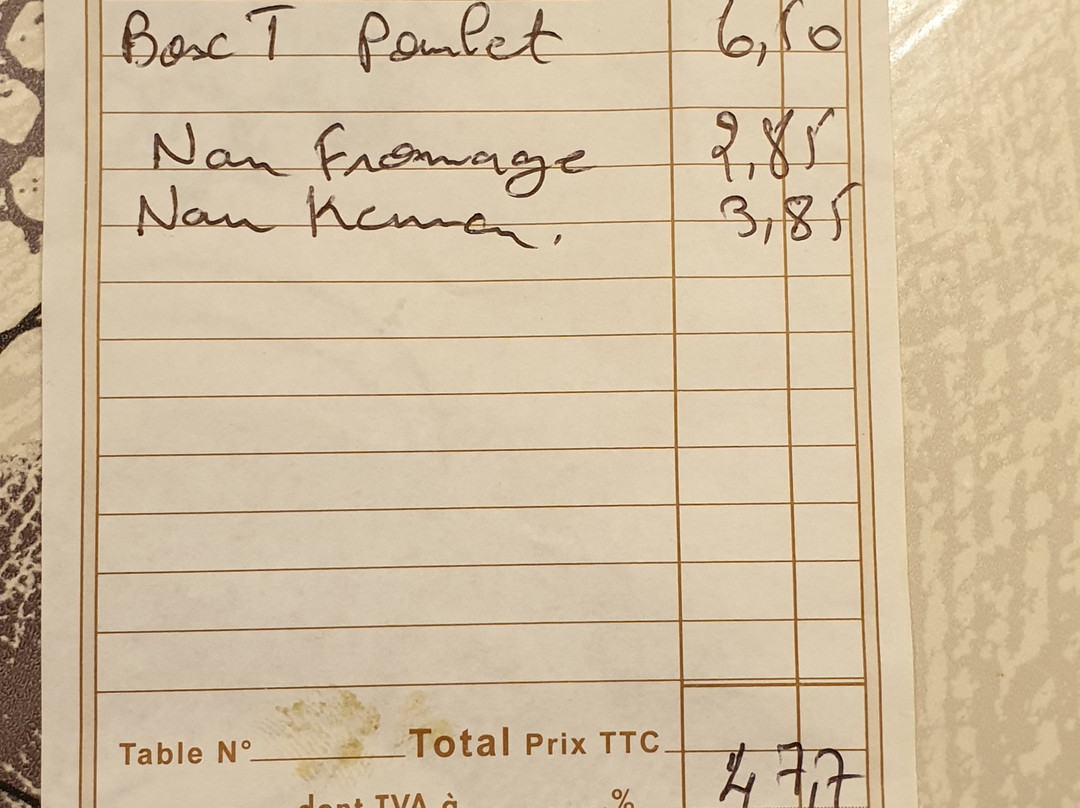 Box T Poulet 6,50
Nan Fromage 2,85
Nan 3,85
Table N° Total Prix TTC 47,7
dont TVA à %